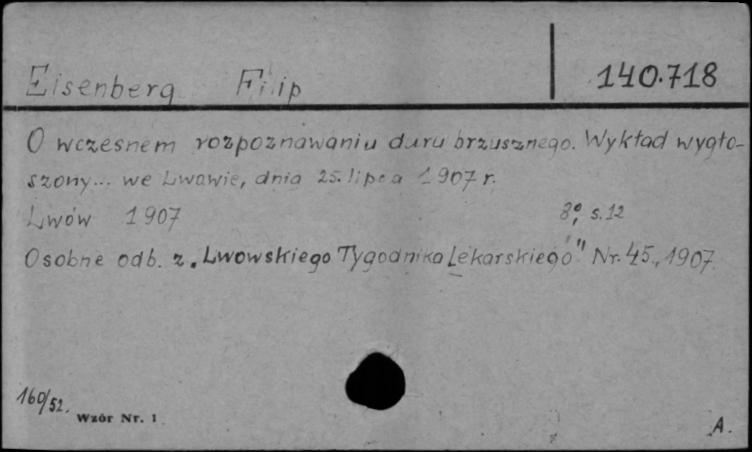 Eisenberg Filip 140.718
O wczesnem rozpoznawaniu duru brzusznego. Wykład wygło-
szony... we Lwowie, dnia 25. lipca 1907 r.
Lwów 1907 8°, s. 12
Osobne odb. z „Lwowskiego Tygodnika Lekarskiego" Nr. 45., 1907
160/52.
Wzór Nr. 1
A.